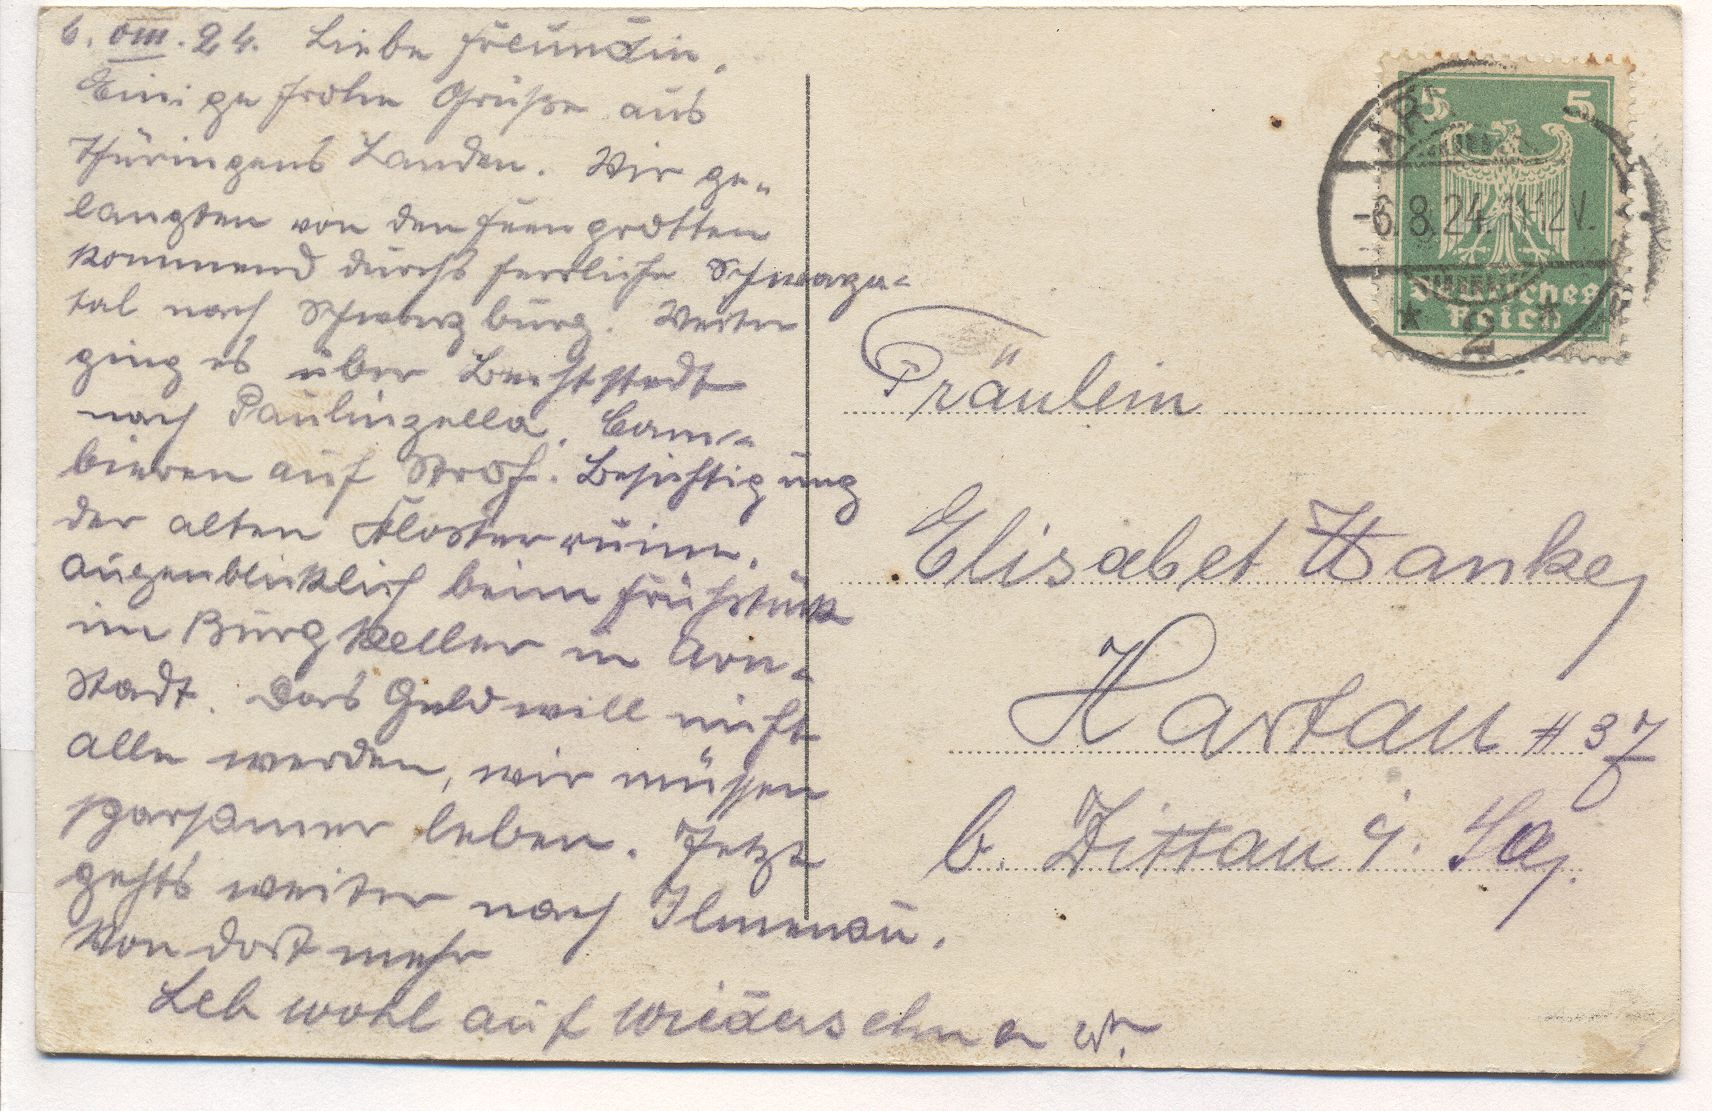 6. VIII. 24. Liebe Freundin.
Einige frohe Grüße aus
Thüringens Landen. Wir ge-
langten von den Feengrotten
kommend durchs herrliche Schwarza-
tal nach Schwarzburg. Weiter
ging es über Bechtstedt
nach Paulinzella. Cam-
bieren auf Stroh. Besichtigung
der alten Klosterruine.
Augenblicklich beim Frühstück
im Burgkeller in Arn-
stadt. Das Geld will nicht
alle werden, wir müssen
sparsamer leben. Jetzt
gehts weiter nach Ilmenau.
Von dort mehr
Leb wohl auf Wiedersehn
5 5
-6.8.24. 11-12 V.
Deutsches
Reich
* 2 *
Fräulein
Elisabet Hanke,
Hartau # 37
b. Zittau i. Sa.